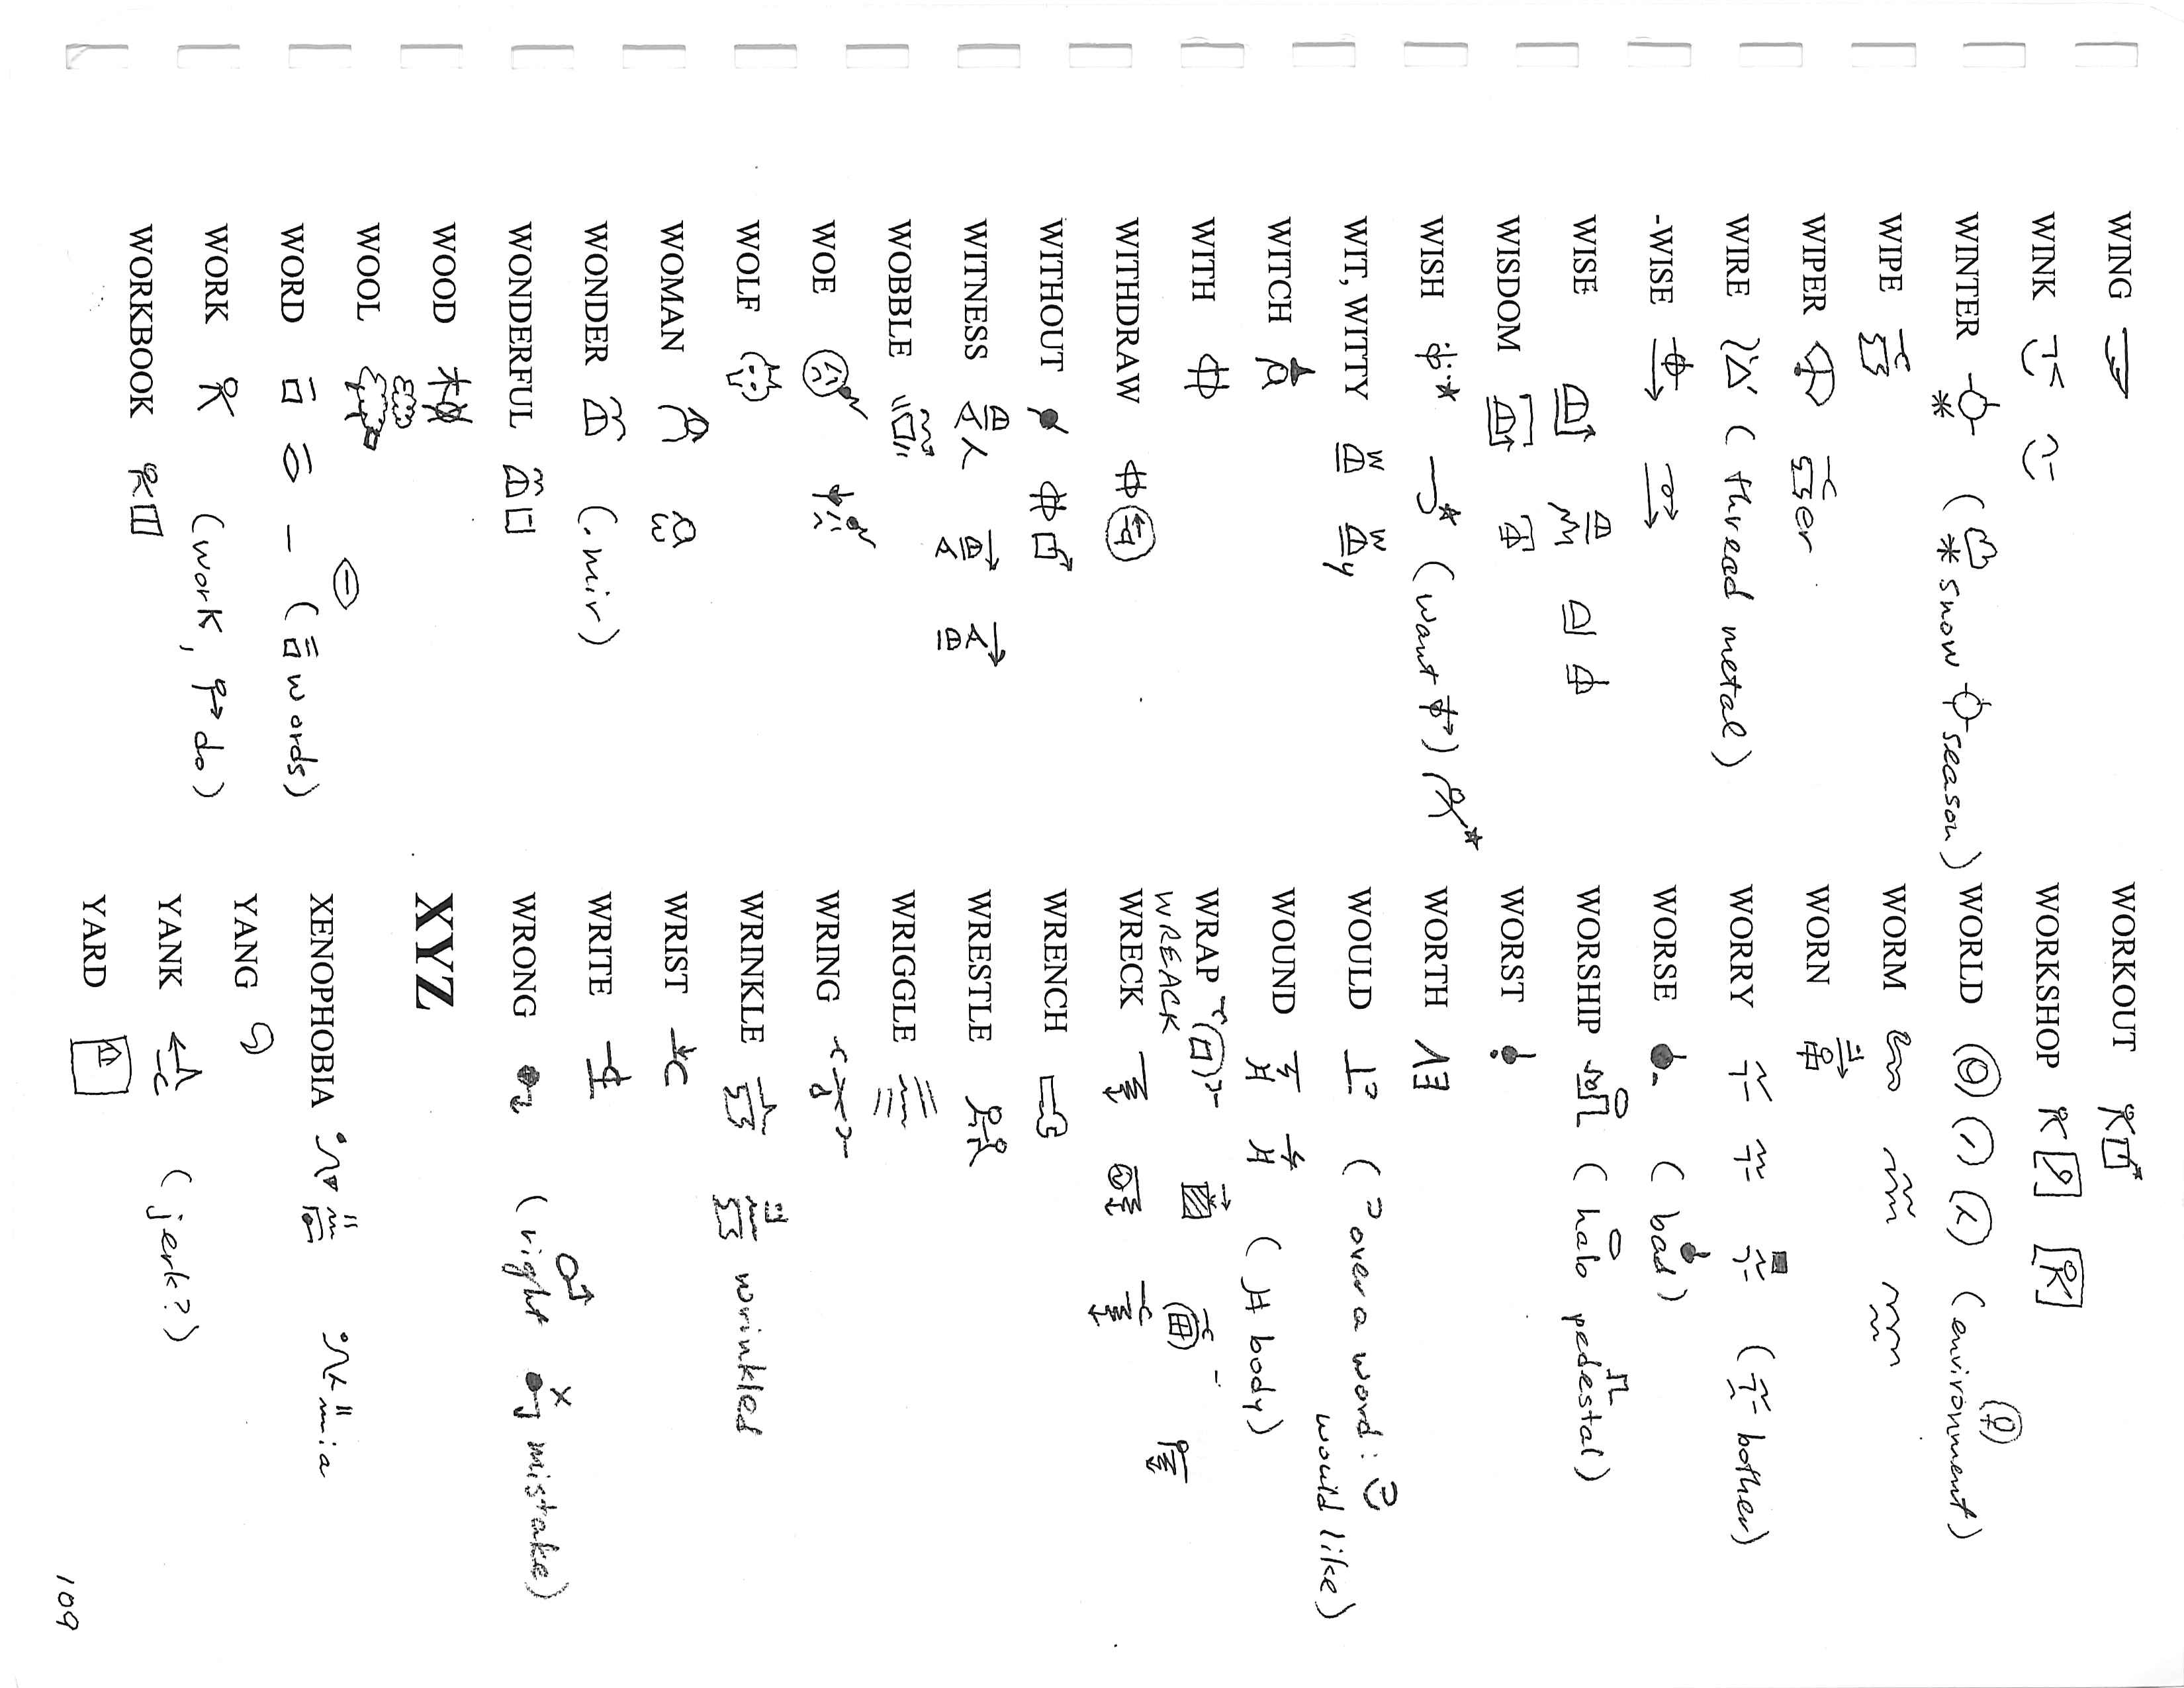 WING
WINK
WINTER ( snow season)
WIPE
WIPER er
WIRE ( thread metal)
-WISE
WISE
WISDOM
WISH (want )
WIT, WITTY W W y
WITCH
WITH
WITHDRAW
WITHOUT
WITNESS
WOBBLE
WOE
WOLF
WOMAN
WONDER (. mir)
WONDERFUL
WOOD
WOOL
WORD ( words)
WORK (work, do)
WORKBOOK
WORKOUT
WORKSHOP
WORLD (environment)
WORM
WORN
WORRY ( bother)
WORSE (bad)
WORSHIP (halo pedestal)
WORST
WORTH
WOULD (? over a word:
would like)
WOUND ( body)
WRAP
WREACK
WRECK
WRENCH
WRESTLE
WRIGGLE
WRING
WRINKLE wrinkled
WRIST
WRITE
WRONG (right mistake)
XYZ
XENOPHOBIA mia
YANG
YANK (jerk?)
YARD
109